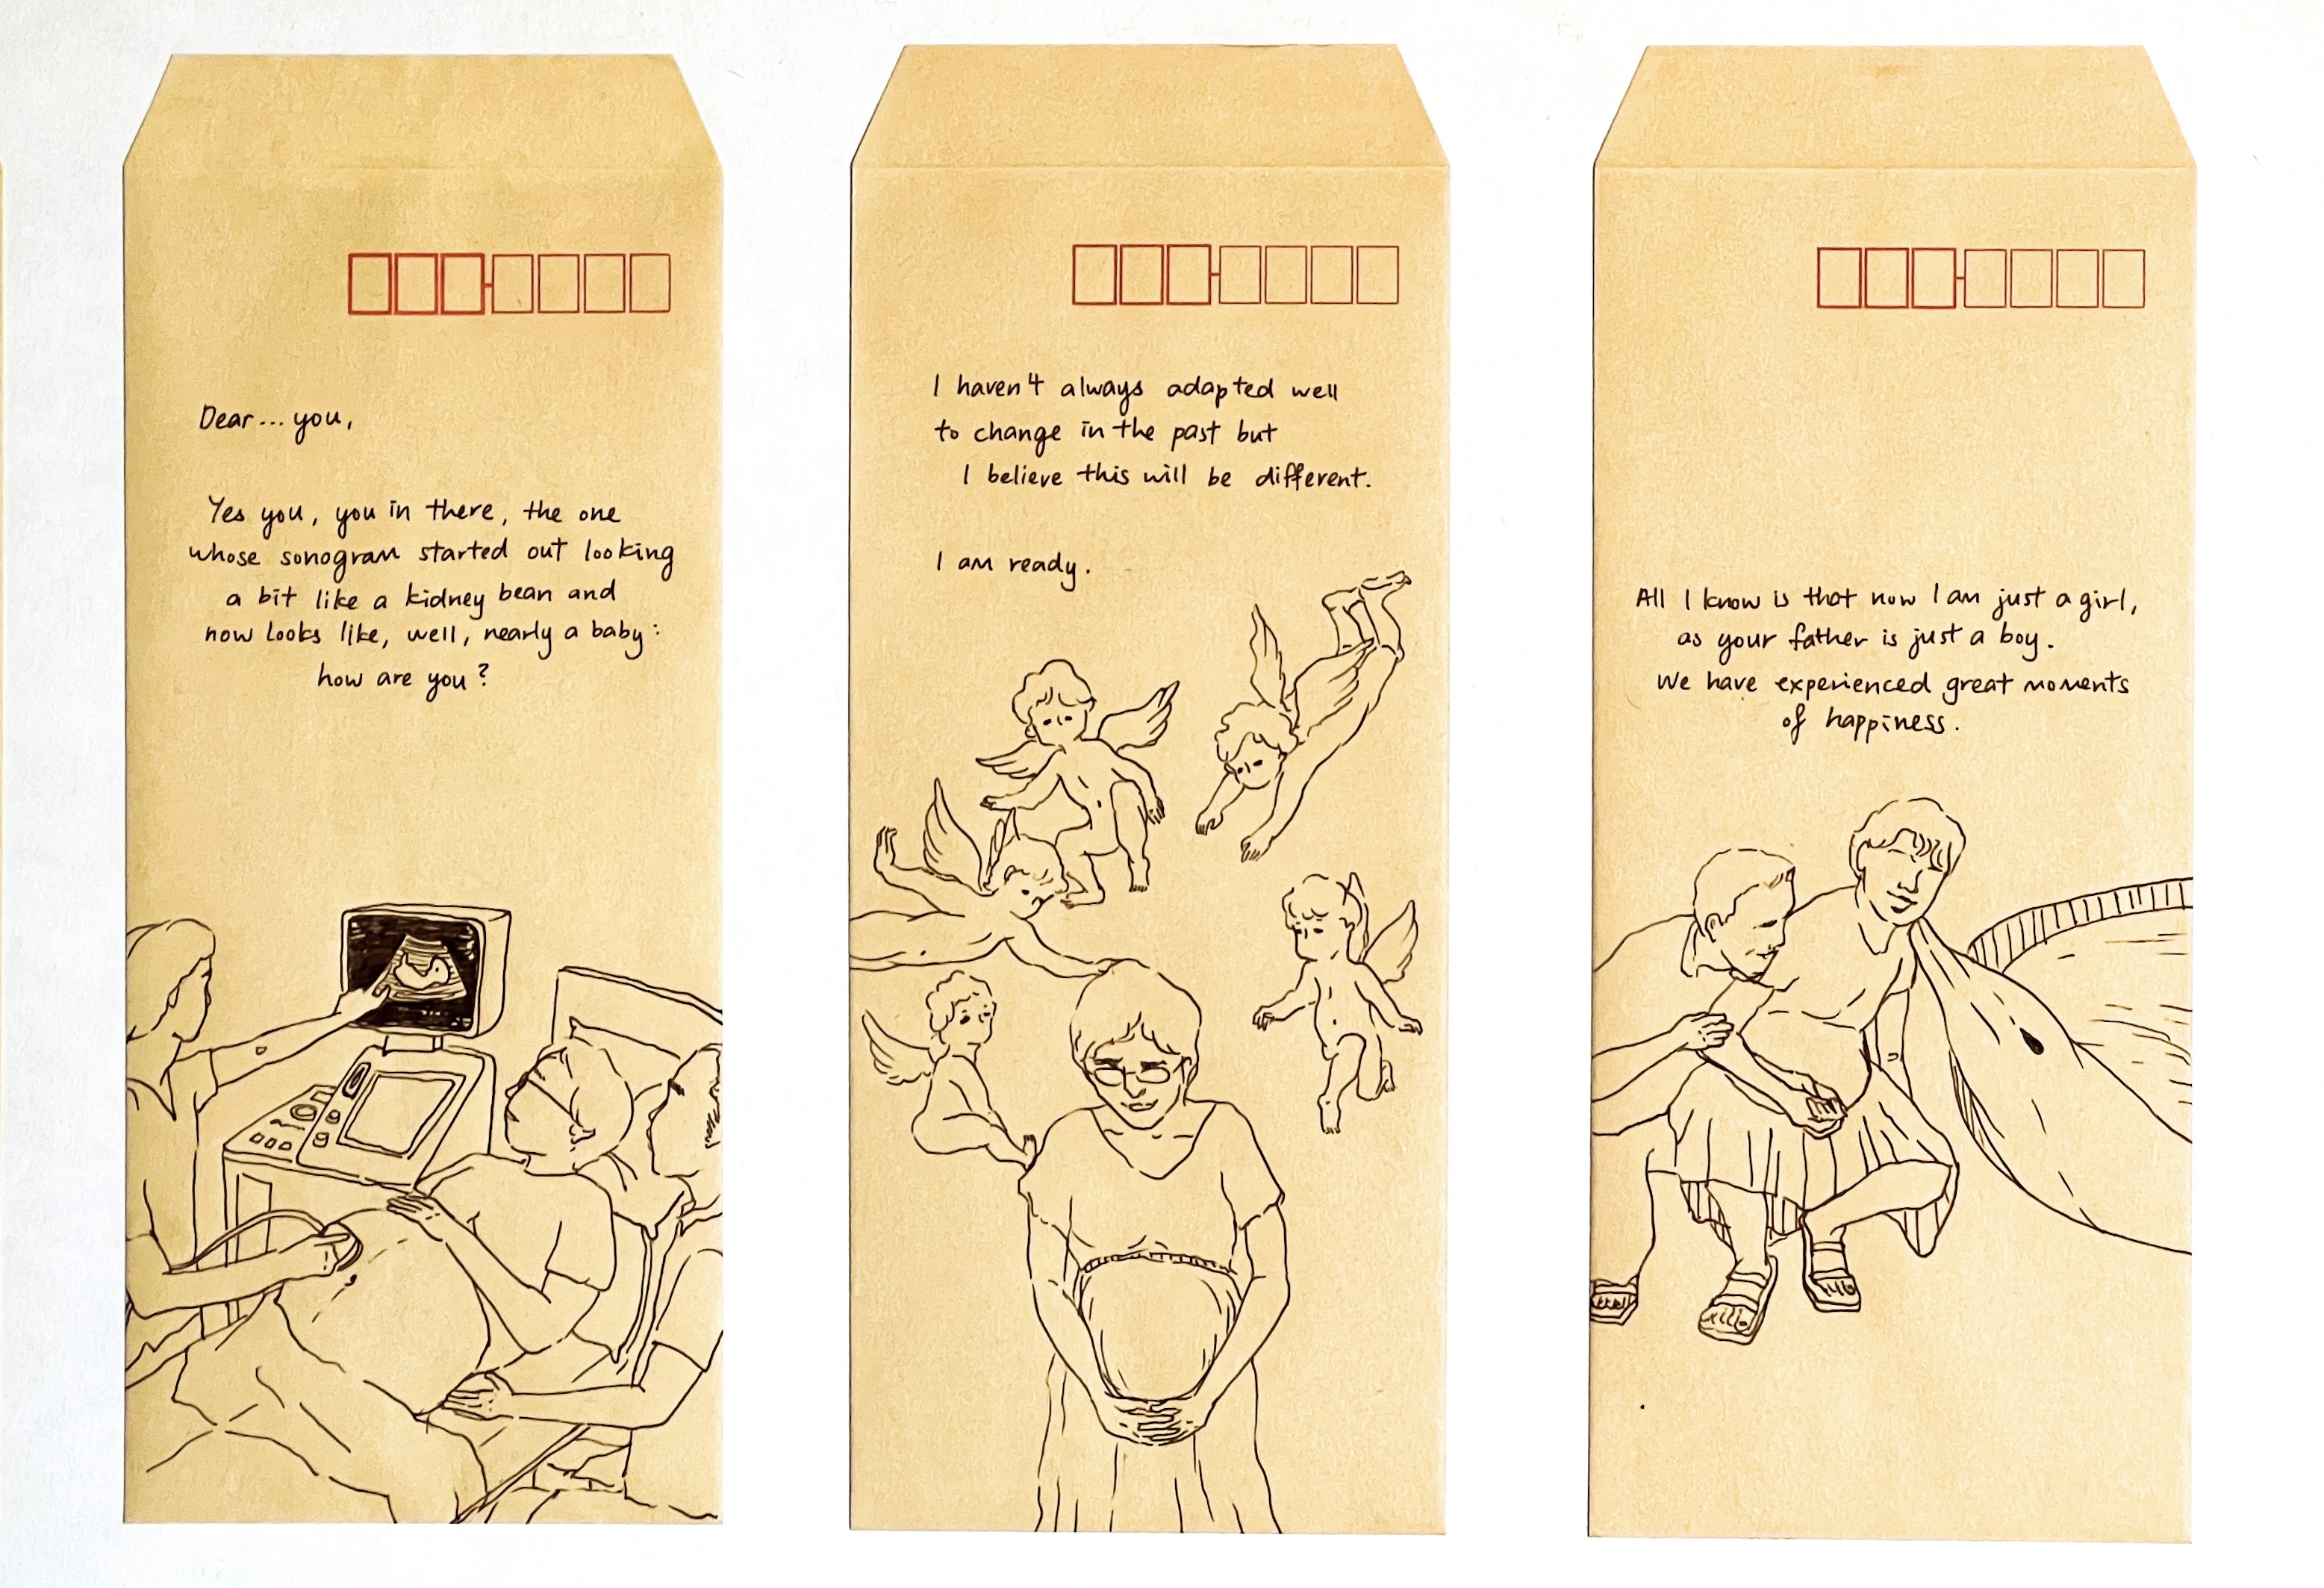 Dear... you,
Yes you, you in there, the one
whose sonogram started out looking
a bit like a kidney bean and
now looks like, well, nearly a baby:
how are you?
I haven't always adapted well
to change in the past but
I believe this will be different.
I am ready.
All I know is that now I am just a girl,
as your father is just a boy.
We have experienced great moments
of happiness.